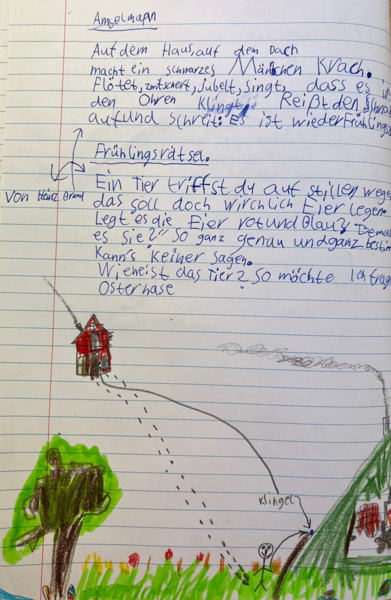 Amselmann
Auf dem Haus, auf den Dach
macht ein schwarzes Mänchen Krach.
Flötet, zwitschert, Jubelt, singt, dass es
den Ohren Klingt. Reißt den
auf und schreit: Es ist wieder Frühlings
Frühlingsrätsel.
Von Heinz Brand
Ein Tier triffst du auf stillen wege
das soll doch wirchlich Eier legen
Legt es die Eier rot und Blau?
es sie?" So ganz genau und ganz bestim
Kann's keiner sagen.
Wie heist das Tier? So möchte Ich frag
Osterhase
Klingel